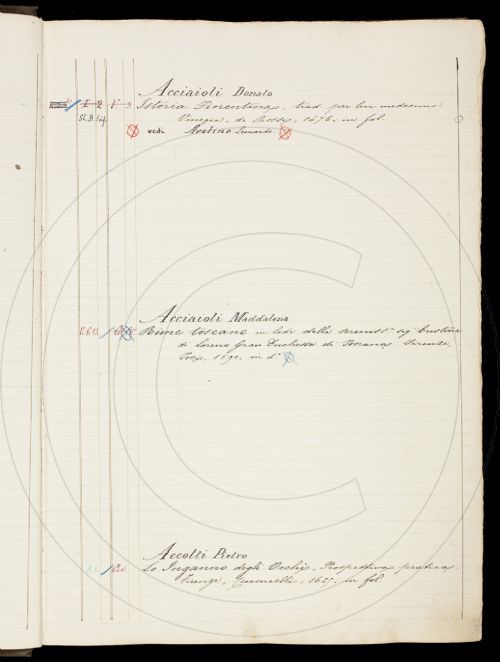 Acciaioli Donato
I 2 Istoria Fiorentina, trad. per lui medesimo
Vinegia, de Rossi, 1476, in fol.
vedi Aretino Leonardo
Acciaioli Maddalena
Rime toscane in lode della sereniss.a sig. Cristina
di Loreno Gran Duchessa di Toscana. Firenze,
in 4.°
Accolti Pietro
Lo Inganno degli Occhi, Prospettiva pratica.
Firenze, 1625, in fol.